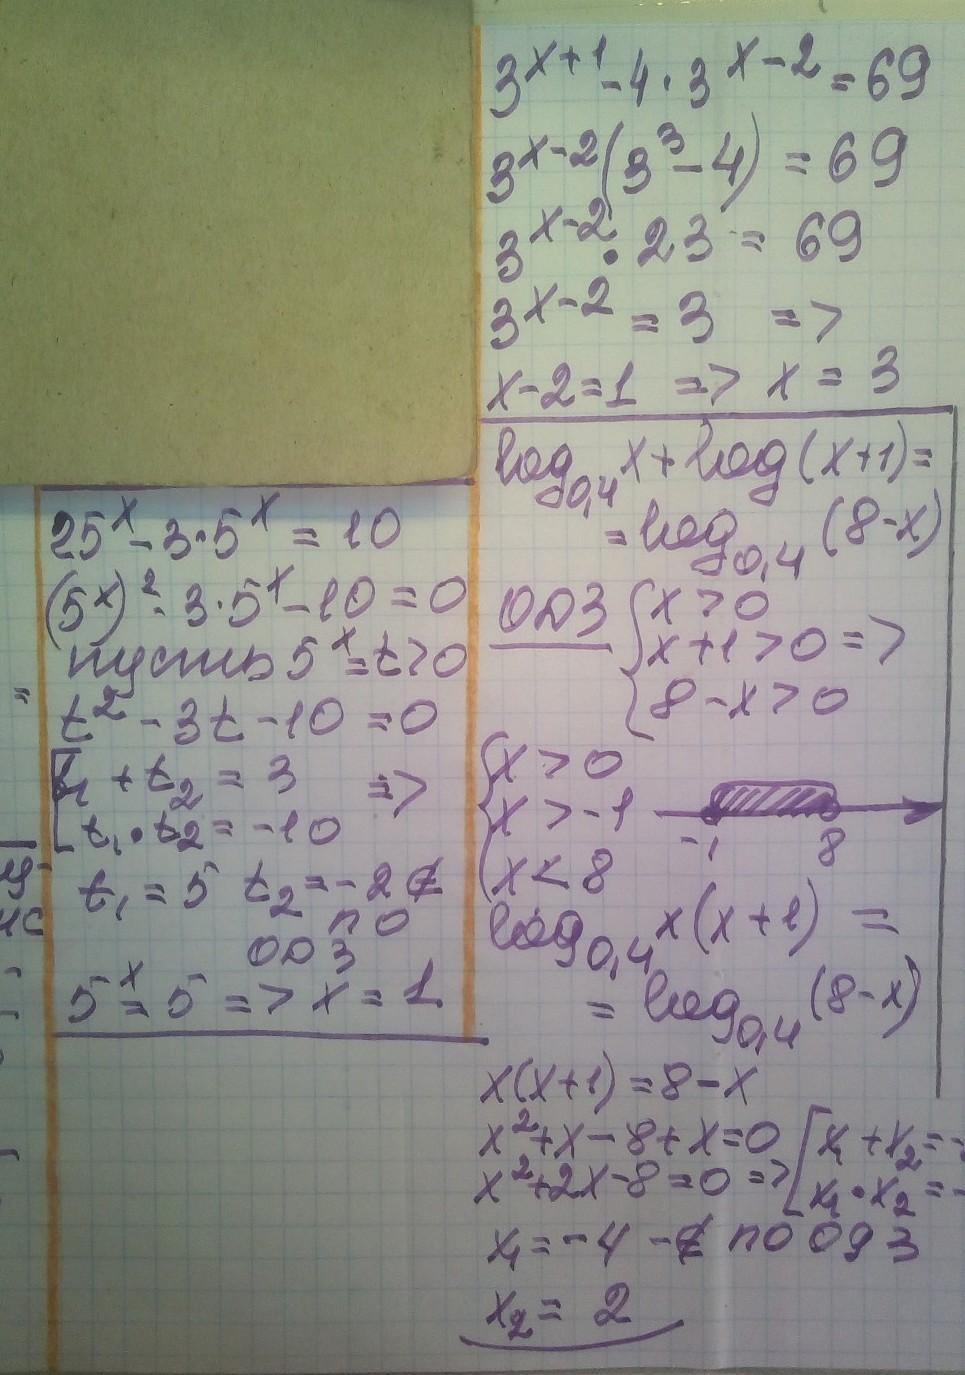 3^{x+1} - 4 · 3^{x-2} = 69
3^{x-2}(3^3 - 4) = 69
3^{x-2} · 23 = 69
3^{x-2} = 3 =>
x-2=1 => x = 3
log_{0,4} x + log (x+1) =
= log_{0,4} (8-x)
ОДЗ { x > 0
x+1 > 0 =>
8-x > 0
{ x > 0
x > -1
-1 8
x < 8
log_{0,4} x(x+1) =
= log_{0,4} (8-x)
x(x+1) = 8-x
x^2+x-8+x=0 [ x_1 + x_2 = -
x^2+2x-8=0 => x_1 · x_2 = -
x_1 = -4 - ∉ по одз
x_2 = 2
25^x - 3·5^x = 10
(5^x)^2 - 3·5^x - 10 = 0
пусть 5^x = t > 0
t^2 - 3t - 10 = 0
[ t_1 + t_2 = 3 =>
t_1 · t_2 = -10
t_1 = 5 t_2 = -2 ∉
по
ОДЗ
5^x = 5 => x = 1